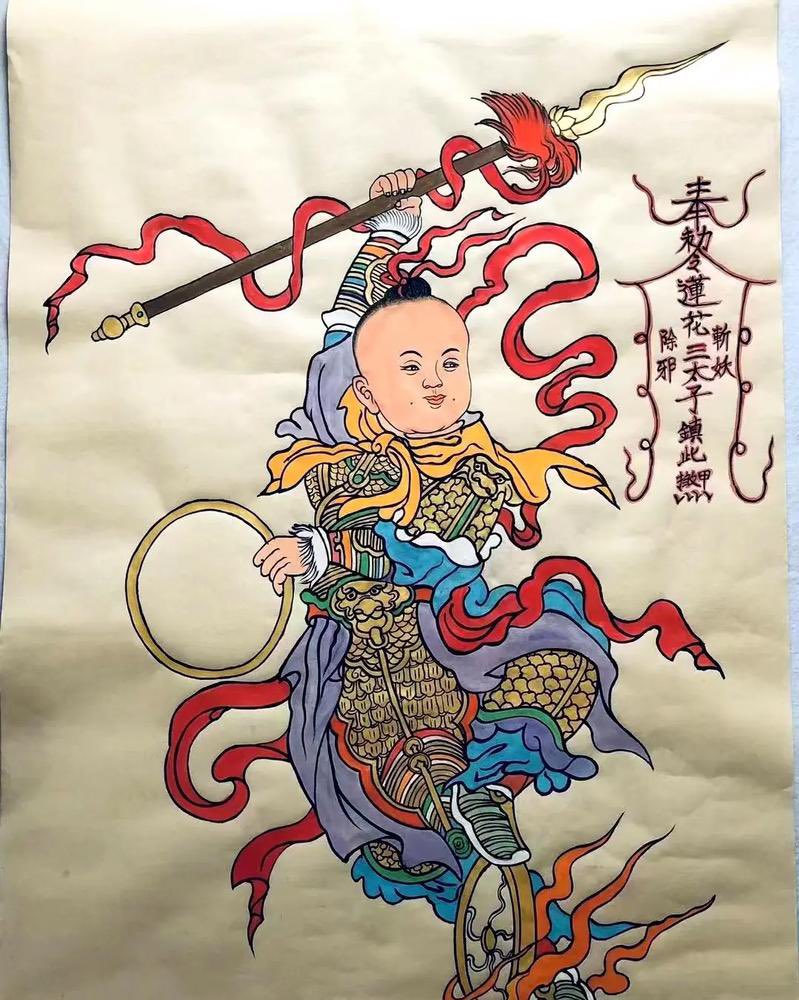 奉勅令蓮花三太子鎮此
斬妖
除邪